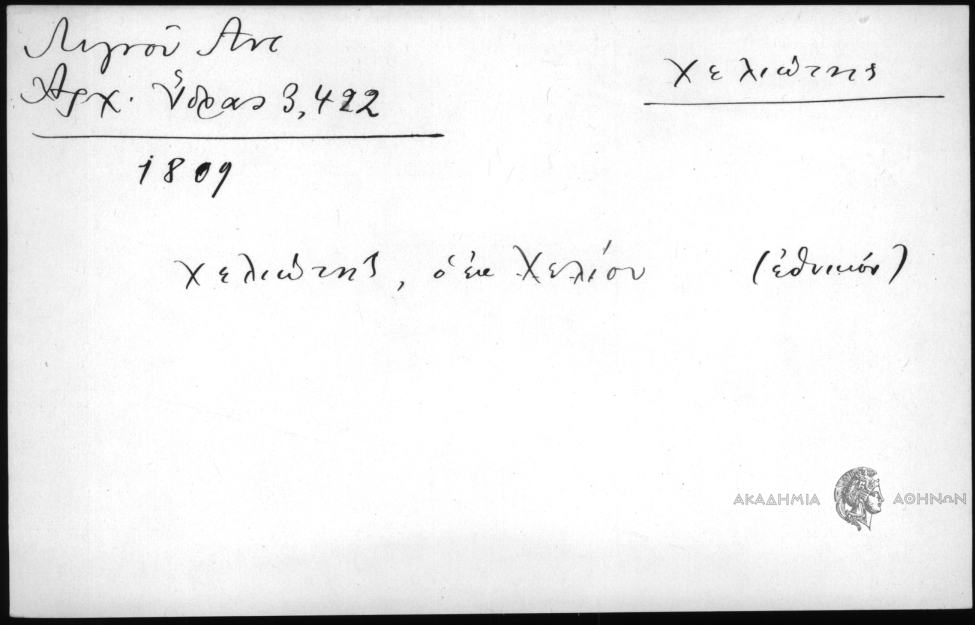 Λιγνοῦ Αντ
Ἀρχ. Ὕδρας 3,422
1809
Χελιώτης
Χελιώτης, ὁ ἐκ Χελίου (ἐθνικόν)
ΑΚΑΔΗΜΙΑ ΑΘΗΝΩΝ